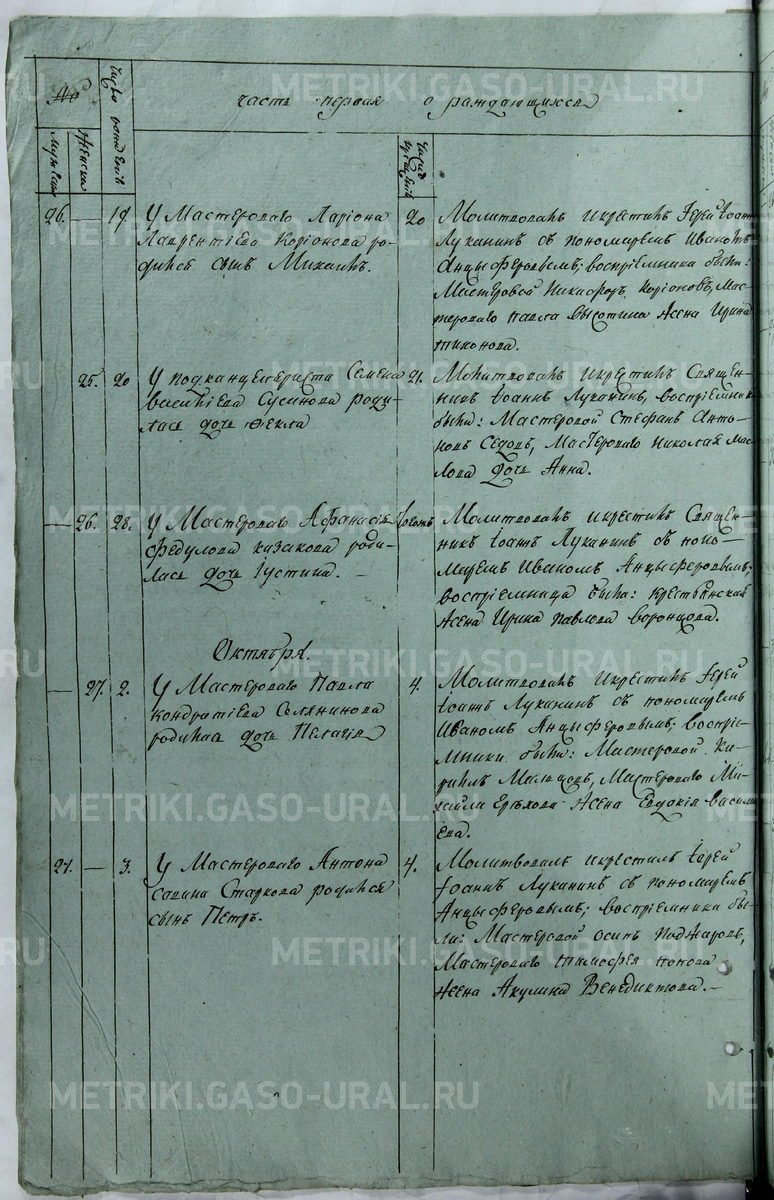 №
Число рожденiй
часть первая о раждающихся
Мужеска
Женска
Число крещенiй
26. — 19 У Мастероваго Ларiона
Лаврентiева Корiонова ро-
дился сынъ Михаилъ.
20 Молитвовалъ и крестилъ Iерей Iоаннъ
Луканинъ съ пономаремъ Иваномъ
Анцыферовымъ; воспрiемники были:
Мастеровой Никифоръ Корiоновъ, Мас-
тероваго Павла Высотина жена Ирина
Тихонова.
25. 20 У подканцеляриста Семена
Васильева Сусанова роди-
лась дочь Fекла
21. Молитвовалъ и крестилъ Священ-
никъ Iоаннъ Луканинъ, воспрiемники
были: Мастеровой Стефанъ Анто-
новъ Седовъ, Мастероваго Николая Мас-
лова дочь Анна.
— 26. 28. У Мастероваго Афанасiя
Федулова Казакова роди-
лась дочь Iустина. —
Молитвовалъ и крестилъ Священ-
никъ Iоаннъ Луканинъ съ поно-
маремъ Иваномъ Анцыферовымъ;
воспрiемница была: крестьянская
жена Ирина Павлова Воронцова.
Октября.
— 27. 2. У Мастероваго Павла
Кондратiева Селянинова
родилась дочь Пелагiя
4. Молитвовалъ и крестилъ Iерей
Iоаннъ Луканинъ съ пономаремъ
Иваномъ Анцыферовымъ; воспрiе-
мники были: Мастеровой Ки-
рилъ Мальцовъ, Мастероваго Ми-
хайла жена Евдокiя Василь-
ева.
27. — 3. У Мастероваго Антона
Савина Старкова родился
сынъ Петръ.
4. Молитвовалъ и крестилъ Iерей
Iоаннъ Луканинъ съ пономаремъ
Анцыферовымъ; воспрiемники бы-
ли: Мастеровой Осипъ Поджаровъ,
Мастероваго Тимофея Попова
жена Акулина Венедиктова. —
METRIKI.GASO-URAL.RU